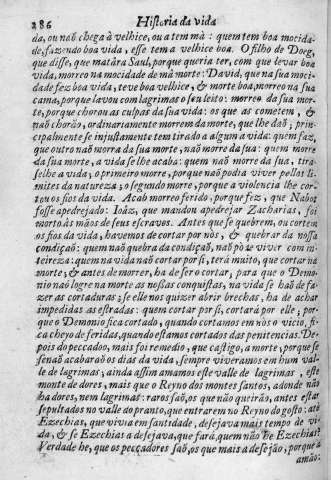 286 Historia da vida
da, ou naõ chega à velhice, ou a tem mà: quem tem boa mocida-
de, fazendo boa vida, esse tem a velhice boa. O filho de Doeg,
que disse, que matàra Saul, porque queria ter, com que levar boa
vida, morreo na mocidade de mà morte: David, que na sua moci-
dade fez boa vida, teve boa velhice, & morte boa, morreo na sua
cama, porque lavou com lagrimas o seu leito: morreo da sua mor-
te, porque chorou as culpas da sua vida: os que as cometem, &
naõ choraõ, ordinariamente morrem da morte, que lhe daõ; prin-
cipalmente se injustamente tem tirado a algum a vida: quem faz,
que outro naõ morra da sua morte, naõ morre da sua: quem morre
da sua morte, a vida se lhe acaba: quem naõ morre da sua, tira-
selhe a vida; o primeiro morre, porque naõ podia viver pellos li-
mites da natureza; o segundo morre, porque a violencia lhe cor-
tou os fios da vida. Acab morreo ferido, porque fez, que Nabot
fosse apedrejado: Ioàz, que mandou apedrejar Zacharias, foi
morto às mãos de seus escravos. Antes que se quebrem, ou cortem
os fios da vida, havemos de cortar por nòs, & quebrar da nossa
condiçaõ: quem naõ quebra da condiçaõ, naõ pòde viver com in-
teireza: quem na vida naõ cortar por si, terà muito, que cortar na
morte; & antes de morrer, ha de ser o cortar, para que o Demo-
nio naõ logre na morte as nossas conquistas, na vida se haõ de fa-
zer as cortaduras; se elle nos quizer abrir brechas, ha de achar
impedidas as estradas: quem cortar por si, cortarà por elle; por-
que o Demonio fica cortado, quando cortamos em nòs o vicio, fi-
ca cheyo de feridas, quando estamos cortados das penitencias. De-
pois do peccado, mais foi remedio, que castigo, a morte, porque se
senaõ acabaraõ os dias da vida, sempre viveramos em hum val-
le de lagrimas; ainda assim amamos este valle de lagrimas, este
monte de dores, mais que o Reyno dos montes santos, adonde naõ
ha dores, nem lagrimas: raros saõ, os que naõ queiraõ, antes estar
sepultados no valle do pranto, que entrarem no Reyno do gosto: atè
Ezechias, que vivia em santidade, desejava mais tempo de vi-
da, & se Ezechias a desejava, que farà, quem naõ he Ezechias?
Verdade he, que os peccadores saõ, os que mais a desejaõ, porque a
amaõ: